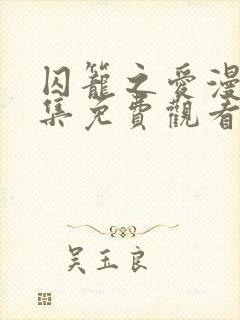 囚籠之愛漫
集免費觀看
吴玉良